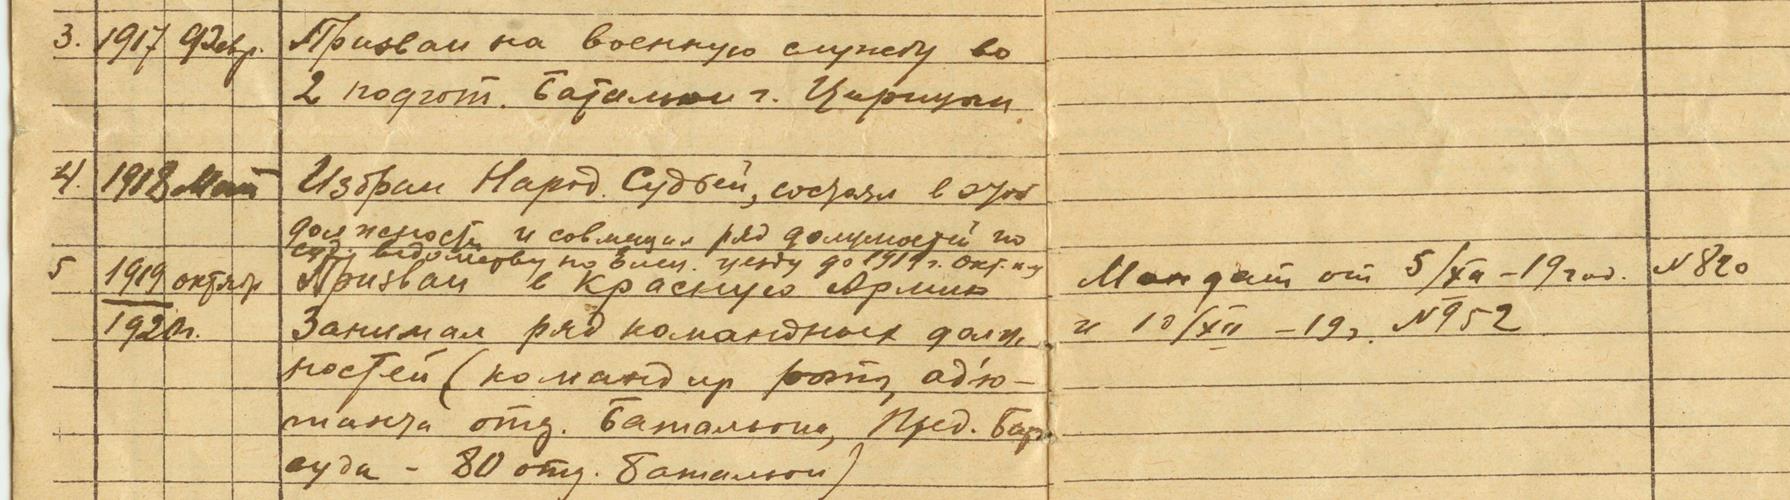 3. 1917 Февр. Призван на военную службу во
2 подгот. батальон г. Царицын.
4. 1918 Май Избран Народ. Судьей, состоял в этой
должности и совмещал ряд должностей по
суд. ведомству по уезду до 1919 г. окт. м-ц
5 1919 октябр Призван в Красную Армию Мандат от 5/XII – 19 год. N 820
1920 г. Занимал ряд командных долж и 10/XII – 19 г. N 952
ностей (командир роты, адъю–
танта отд. батальона, Пред. Бат.
суда – 80 отд. батальон)